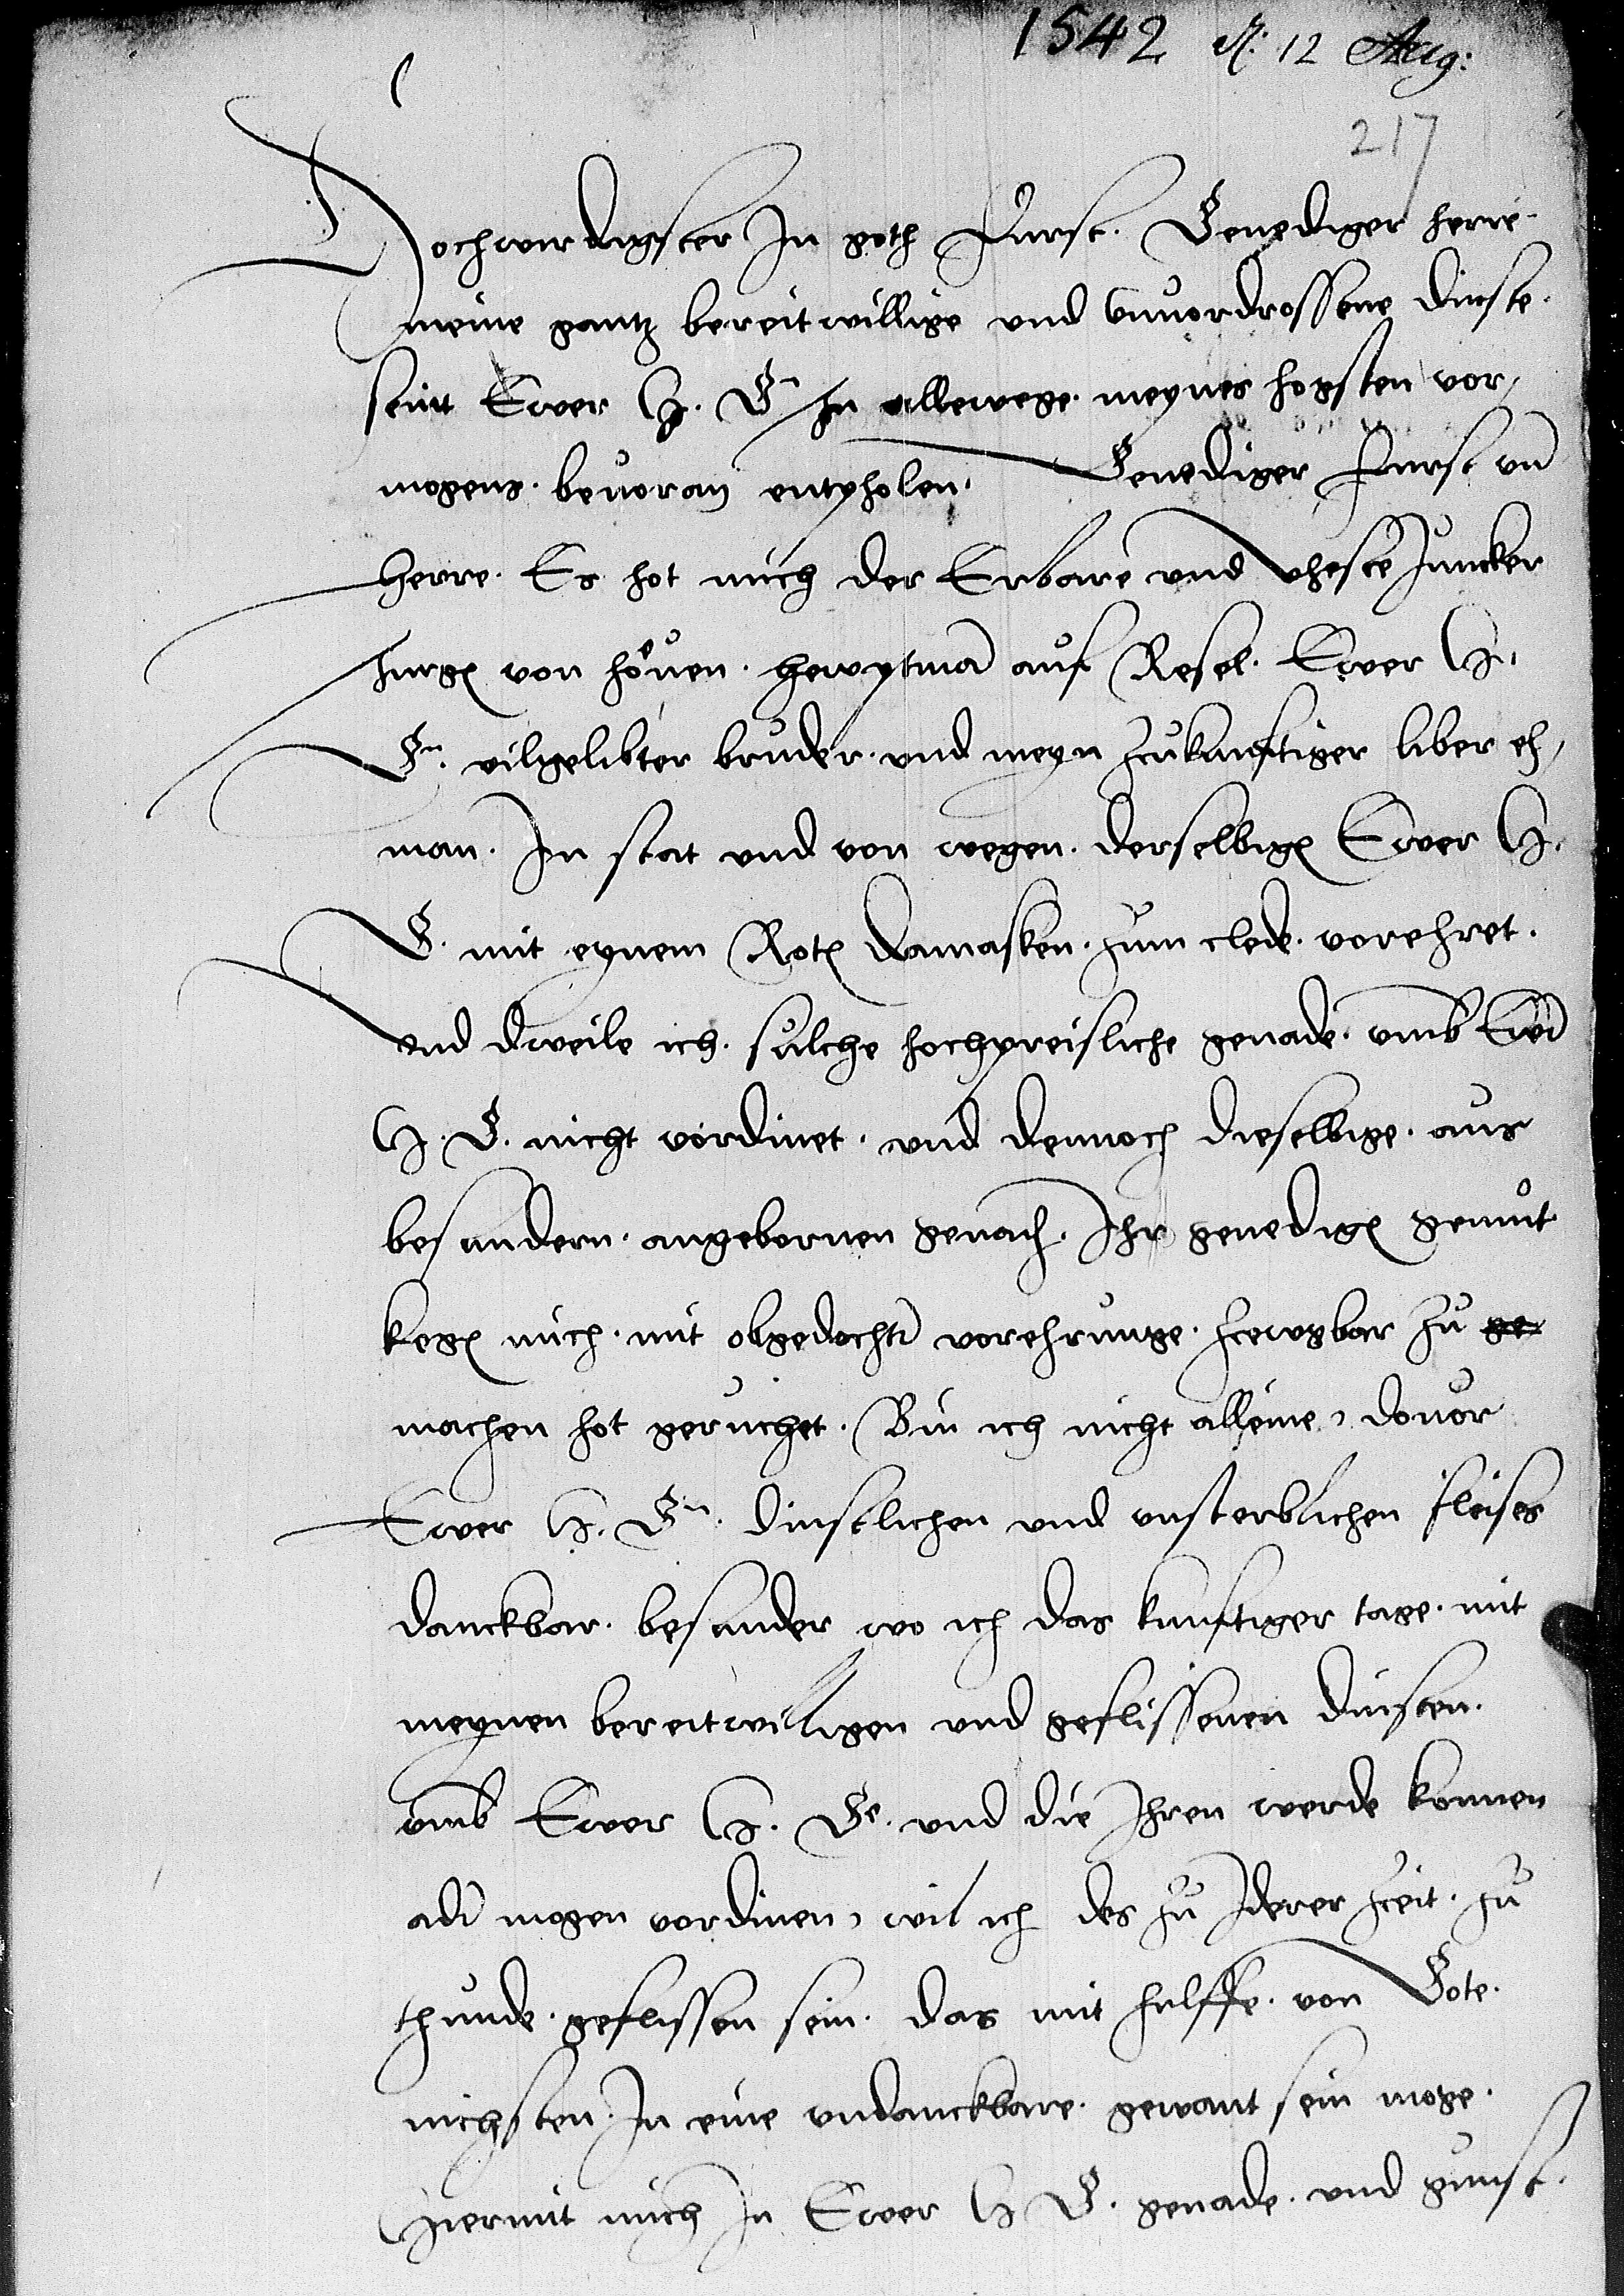 1542 A: 12 Aug:
217
Hochwirdigster In goth Furst. Genediger herre
meine gantz bereitwillige und unvordrossene dinste
seint Ewer H. Gn In allewege meynes hogsten vor,
mogens bevoran entpholen. Genediger Furst un
herre. Es hot mich der Erbare und Vheste Juncker
Jurge von Höven hewptman auf Resel. Ewer H.
Gn. vilgelibter bruder und meyn zukunftiger liber eh,
man. In stat und von wegen derselbige Ewer H.
G. mit eynem Rote damasken zum clede vorehret.
Und dweile ich sulche hochpreisliche genade umb Ewer
H. G. nicht vordinet und dennoch dieselbige aus
besundern angebornen genade Ihr genedige gemut
kege mich mit obgedochter vorehrunge zcewgbar zu ge
machen hot geruchet. Bin ich nicht alleine, dovor
Ewer H. Gn. dinstlichen und unsterblichen fleises
danckbar besunder wo ich das kunftiger tage mit
meynen bereitwilligen und geflissenen dinsten
umb Ewer H. Ge. und die Ihren werde konnen
ader mogen vordinen, wil ich des zu Iderer zceit zu
thunde geflissen sein. das mit hulffe von Gote
nichsten In eine undanckbare gewant sein moge.
Hiermit mich In Ewer H G. genade und gunst.